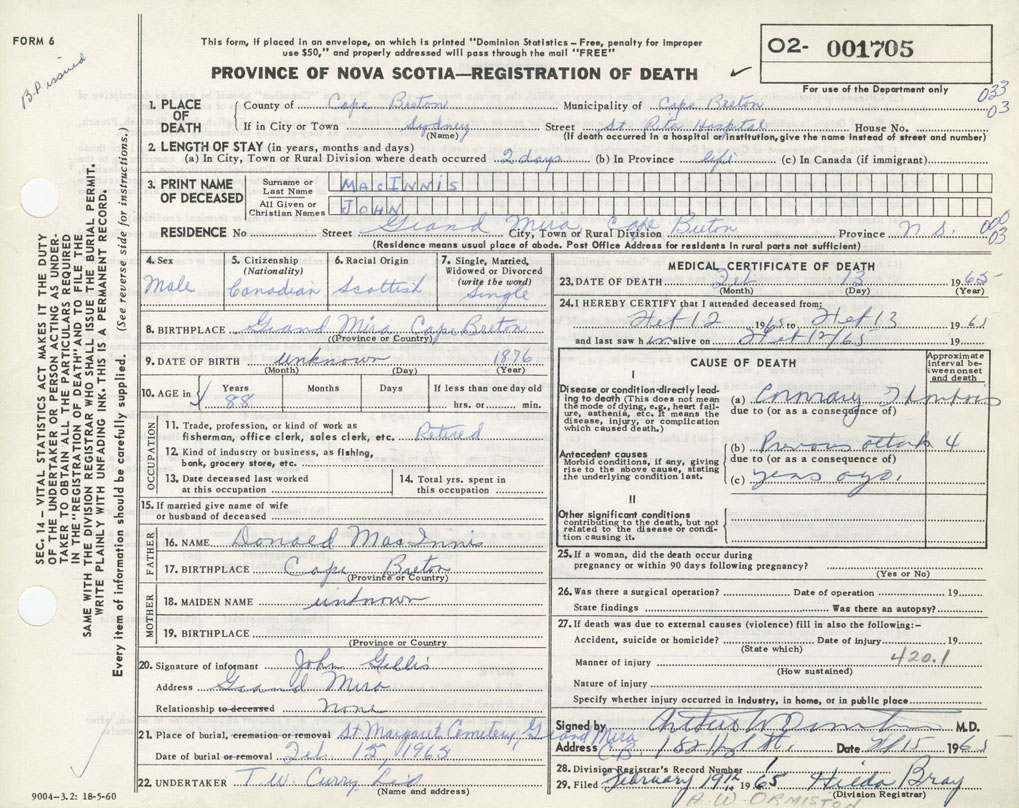 FORM 6
B.P issued
This form, if placed in an envelope, on which is printed "Dominion Statistics – Free, penalty for improper
use $50," and properly addressed will pass through the mail "FREE"
PROVINCE OF NOVA SCOTIA—REGISTRATION OF DEATH ✓
02- 001705
For use of the Department only
1. PLACE OF DEATH
County of Cape Breton Municipality of Cape Breton 033 03
If in City or Town Sydney Street St Rita Hospital House No.
(Name) (If death occurred in a hospital or institution, give the name instead of street and number)
2. LENGTH OF STAY (in years, months and days)
(a) In City, Town or Rural Division where death occurred 2 days (b) In Province life (c) In Canada (if immigrant)
3. PRINT NAME OF DECEASED
Surname or Last Name MACINNIS
All Given or Christian Names JOHN
RESIDENCE No Street Grand Mira Cape Breton City, Town or Rural Division Province N.S. 000 03
(Residence means usual place of abode. Post Office Address for residents in rural parts not sufficient)
4. Sex Male
5. Citizenship (Nationality) Canadian
6. Racial Origin Scottish
7. Single, Married, Widowed or Divorced (write the word) Single
8. BIRTHPLACE Grand Mira Cape Breton
(Province or Country)
9. DATE OF BIRTH unknown 1876
(Month) (Day) (Year)
10. AGE in Years 88 Months Days If less than one day old hrs. or min.
OCCUPATION
11. Trade, profession, or kind of work as
fisherman, office clerk, sales clerk, etc. Retired
12. Kind of industry or business, as fishing,
bank, grocery store, etc.
13. Date deceased last worked
at this occupation
14. Total yrs. spent in
this occupation
15. If married give name of wife
or husband of deceased
FATHER
16. NAME Donald MacInnis
17. BIRTHPLACE Cape Breton
(Province or Country)
MOTHER
18. MAIDEN NAME unknown
19. BIRTHPLACE
(Province or Country)
20. Signature of informant John Gillis
Address Grand Mira
Relationship to deceased None
21. Place of burial, cremation or removal St Margaret Cemetery, Grand Mira
Date of burial or removal Feb. 15, 1965
22. UNDERTAKER T.W. Curry Ltd
(Name and address)
9004-3.2: 18-5-60
SEC. 14 – VITAL STATISTICS ACT MAKES IT THE DUTY
OF THE UNDERTAKER OR PERSON ACTING AS UNDER-
TAKER TO OBTAIN ALL THE PARTICULARS REQUIRED
IN THE "REGISTRATION OF DEATH" AND TO FILE THE
SAME WITH THE DIVISION REGISTRAR WHO SHALL ISSUE THE BURIAL PERMIT.
WRITE PLAINLY WITH UNFADING INK. THIS IS A PERMANENT RECORD.
Every item of information should be carefully supplied. (See reverse side for instructions.)
MEDICAL CERTIFICATE OF DEATH
23. DATE OF DEATH Feb 13 1965
(Month) (Day) (Year)
24. I HEREBY CERTIFY that I attended deceased from:
Feb 12 1965 to Feb 13 1965
and last saw him alive on Feb 12/65 19
CAUSE OF DEATH
Approximate interval between onset and death
I
Disease or condition directly lead-
ing to death (This does not mean
the mode of dying, e.g., heart fail-
ure, asthenia, etc. It means the
disease, injury, or complication
which caused death.)
(a) Coronary Thrombosis
due to (or as a consequence of)
Antecedent causes
Morbid conditions, if any, giving
rise to the above cause, stating
the underlying condition last.
(b) Previous attack 4
due to (or as a consequence of)
(c) years ago.
II
Other significant conditions
contributing to the death, but not
related to the disease or condi-
tion causing it.
25. If a woman, did the death occur during
pregnancy or within 90 days following pregnancy?
(Yes or No)
26. Was there a surgical operation? Date of operation 19
State findings Was there an autopsy?
27. If death was due to external causes (violence) fill in also the following:–
Accident, suicide or homicide? Date of injury 19
(State which)
Manner of injury 420.1
(How sustained)
Nature of injury
Specify whether injury occurred in industry, in home, or in public place
Signed by Arthur W Ormiston M.D.
Address Date 1965
28. Division Registrar's Record Number 1
29. Filed February 19th 1965 Hilda Bray
(Division Registrar)
A.W. ORMISTON